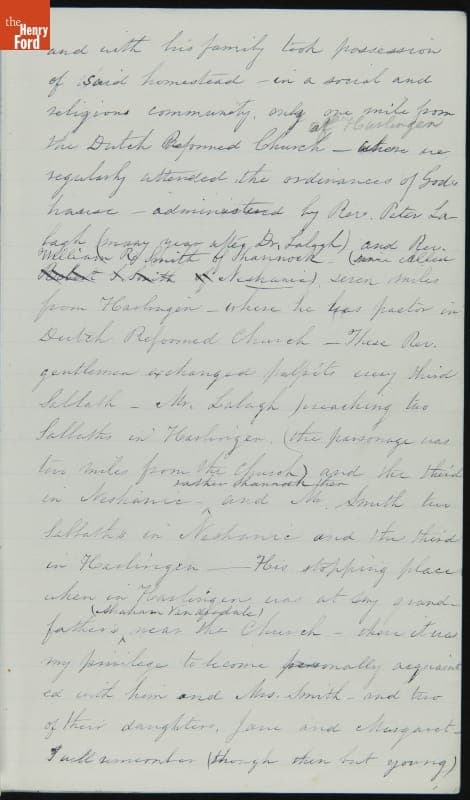 the
Henry
Ford
and with his family took possession
of said homestead – in a social and
religious community, only one mile from
at Harlingen
the Dutch Reformed Church – where we
regularly attended the ordinances of God's
house – administered by Rev. Peter La-
bagh (many years after Dr. Labagh) and Rev.
William R. Smith of Shannock (since called
Neshanic) seven miles
from Harlingen – where he was pastor in
Dutch Reformed Church – These Rev.
gentlemen exchanged pulpits every third
Sabbath – Mr. Labagh preaching two
Sabbaths in Harlingen. (the parsonage was
two miles from the Church) and the third
rather Shannock then
in Neshanic – and Mr. Smith two
Sabbaths in Neshanic and the third
in Harlingen – His stopping place
when in Harlingen was at my grand-
(Abraham Van Arsdale)
father's near the Church – there it was
my privilege to become personally acquaint
ed with him and Mrs. Smith – and two
of their daughters, Jane and Margaret –
I well remember (though then but young)